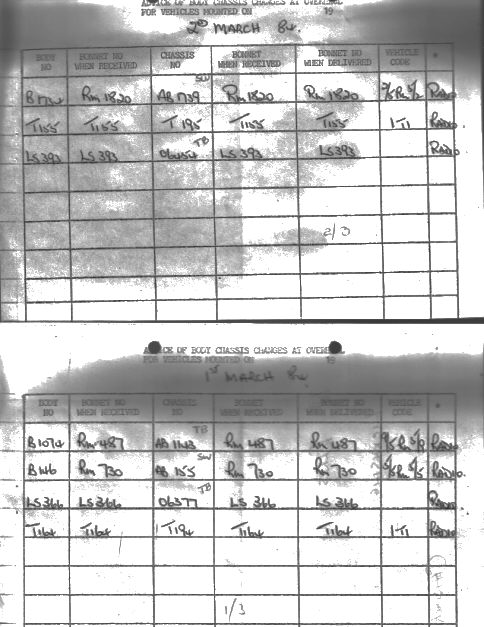 ADVICE OF BODY CHASSIS CHANGES AT OVERHAUL
FOR VEHICLES MOUNTED ON 19
2ND MARCH 84.
BODY NO BONNET NO WHEN RECEIVED CHASSIS NO BONNET WHEN RECEIVED BONNET NO WHEN DELIVERED VEHICLE CODE *
SW
RM 1820 AB 1739 RM 1820 RM 1820 RADIO
T1155 T1155 T 195 T1155 T1155 1-T1 RADIO.
TB
LS 393 LS 393 06454 LS 393 LS 393 RADIO.
2/3
ADVICE OF BODY CHASSIS CHANGES AT OVERHAUL
FOR VEHICLES MOUNTED ON 19
1ST MARCH 84
BODY NO BONNET NO WHEN RECEIVED CHASSIS NO BONNET WHEN RECEIVED BONNET NO WHEN DELIVERED VEHICLE CODE *
TB
B1074 RM 487 AB 1143 RM 487 RM 487 RADIO
SW
B146 RM 730 AB 155 RM 730 RM 730 RADIO.
TB
LS 366 LS 366 06377 LS 366 LS 366 RADIO
T1164 T1164 T1194 T1164 T1164 1-T1 RADIO
1/3